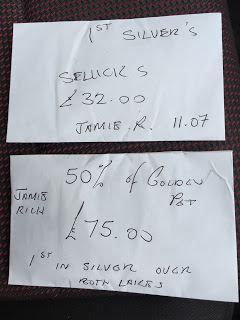 1ST SILVER'S
SELUCK S
£32.00
JAMIE.R. 11.07
50% of GOLDEN
POT
JAMIE
RICH
£75.00
1ST IN SILVER OVER
BOTH LAKES